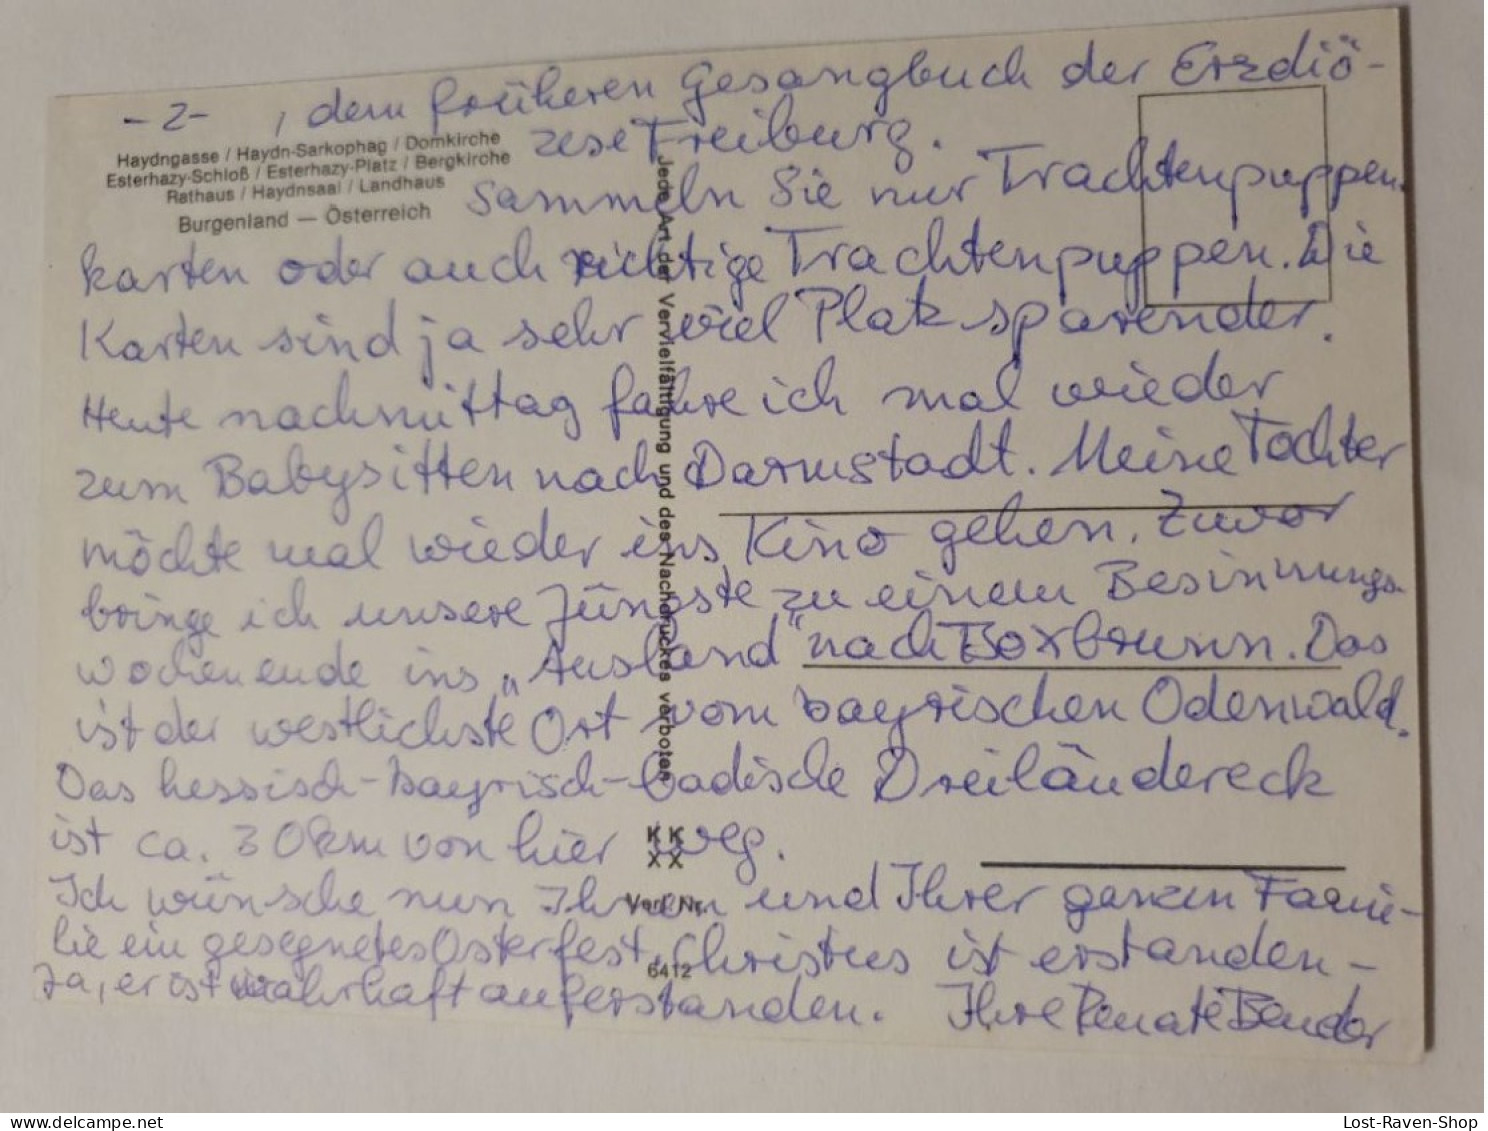 -2- , dem früheren Gesangbuch der Erzdiö-
Haydngasse / Haydn-Sarkophag / Domkirche
Esterhazy-Schloß / Esterhazy-Platz / Bergkirche
Rathaus / Haydnsaal / Landhaus
Burgenland — Österreich
zese Freiburg.
Sammeln Sie nur Trachtenpuppen-
karten oder auch richtige Trachtenpuppen. Die
Karten sind ja sehr viel Platz sparender.
Heute nachmittag fahre ich mal wieder
zum Babysitten nach Darmstadt. Meine Tochter
möchte mal wieder ins Kino gehen. Zuvor
bringe ich unsere Jüngste zu einem Besinnungs-
wochenende ins „Ausland" nach Boxbrunn. Das
ist der westlichste Ort vom bayrischen Odenwald.
Das hessisch-bayrisch-badische Dreiländereck
ist ca. 30km von hier weg.
Ich wünsche nun Ihnen und Ihrer ganzen Fami-
lie ein gesegnetes Osterfest. Christus ist erstanden -
Ja, er ist wahrhaft auferstanden. Ihre Renate Bender
Jede Art der Vervielfältigung und des Nachdruckes verboten
K K
X X
Verl. Nr.
6412
www.delcampe.net
Lost-Raven-Shop